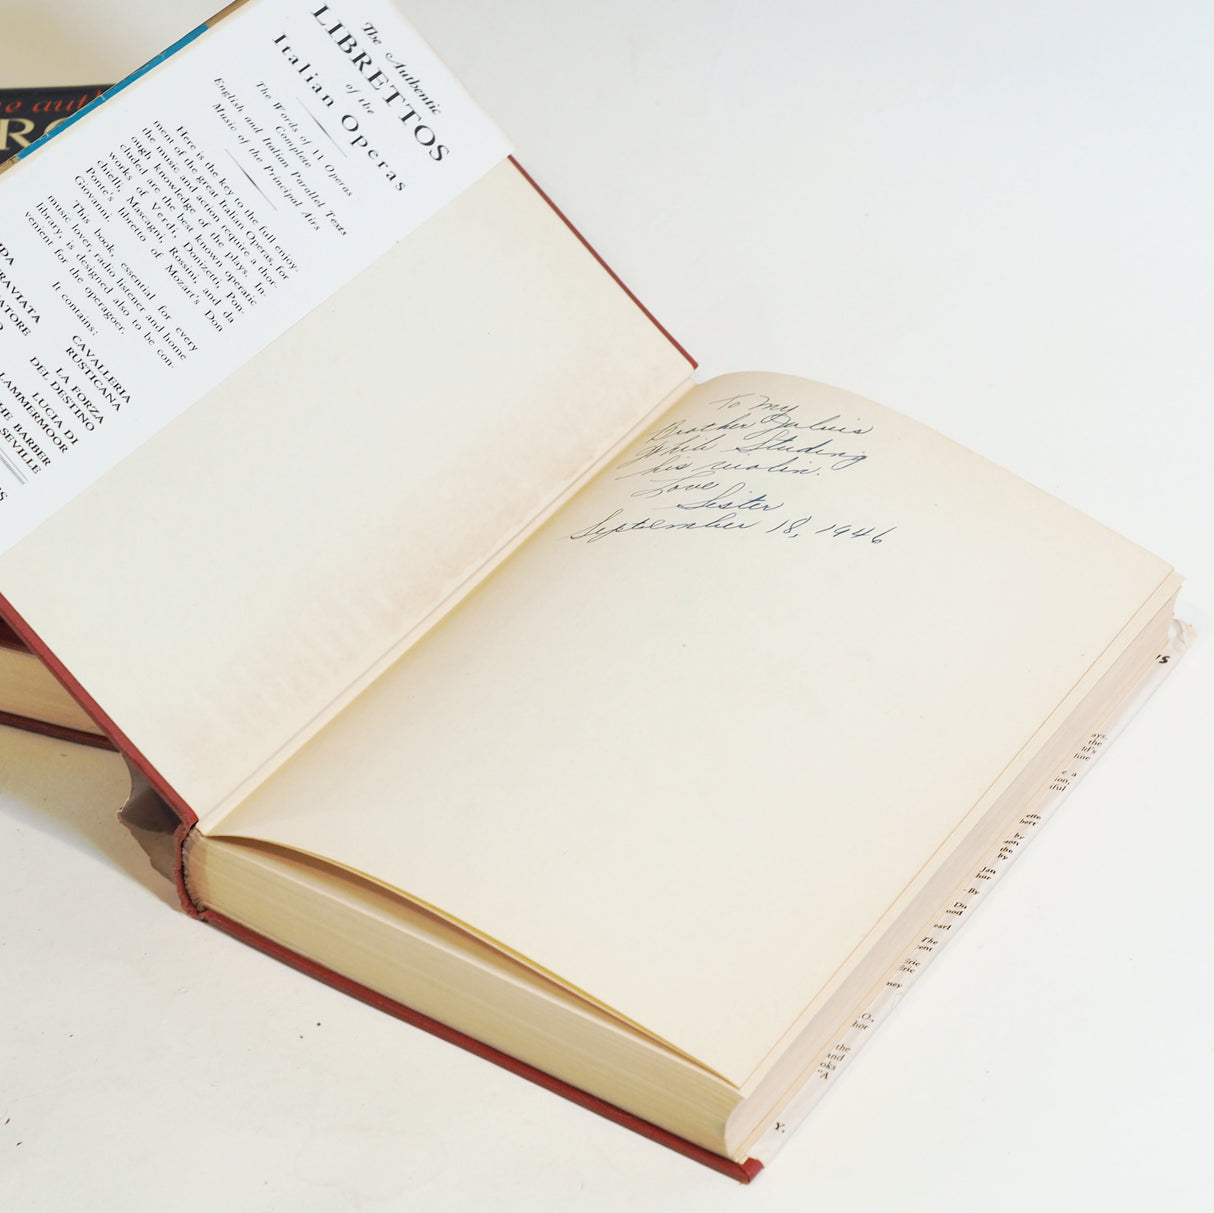 The Authentic
LIBRETTOS
of the
Italian Operas
The Words of 11 Operas
Complete
English and Italian Parallel Texts
Music of the Principal Airs
Here is the key to the full enjoy-
ment of the great Italian Operas, for
the music and action require a thor-
ough knowledge of the plays. In-
cluded are the best known operatic
works of Verdi, Donizetti, Pon-
chielli, Mascagni, Rossini, and da
Ponte's libretto of Mozart's Don
Giovanni.
This book, essential for every
music lover, radio listener and home
library, is designed also to be con-
venient for the operagoer.
It contains:
CAVALLERIA
RUSTICANA
LA FORZA
DEL DESTINO
LUCIA DI
LAMMERMOOR
HE BARBER
SEVILLE
IDA
RAVIATA
To My
Brother Julius
While Studing
his violin.
Love
Sister
September 18, 1946
ays,
the
ld's
fine
e a
ion,
iful
by
the
by
Jan
hor
By
Du
ood
earl
The
cent
ney
O,
hor
the
and
oks
"A
Y.